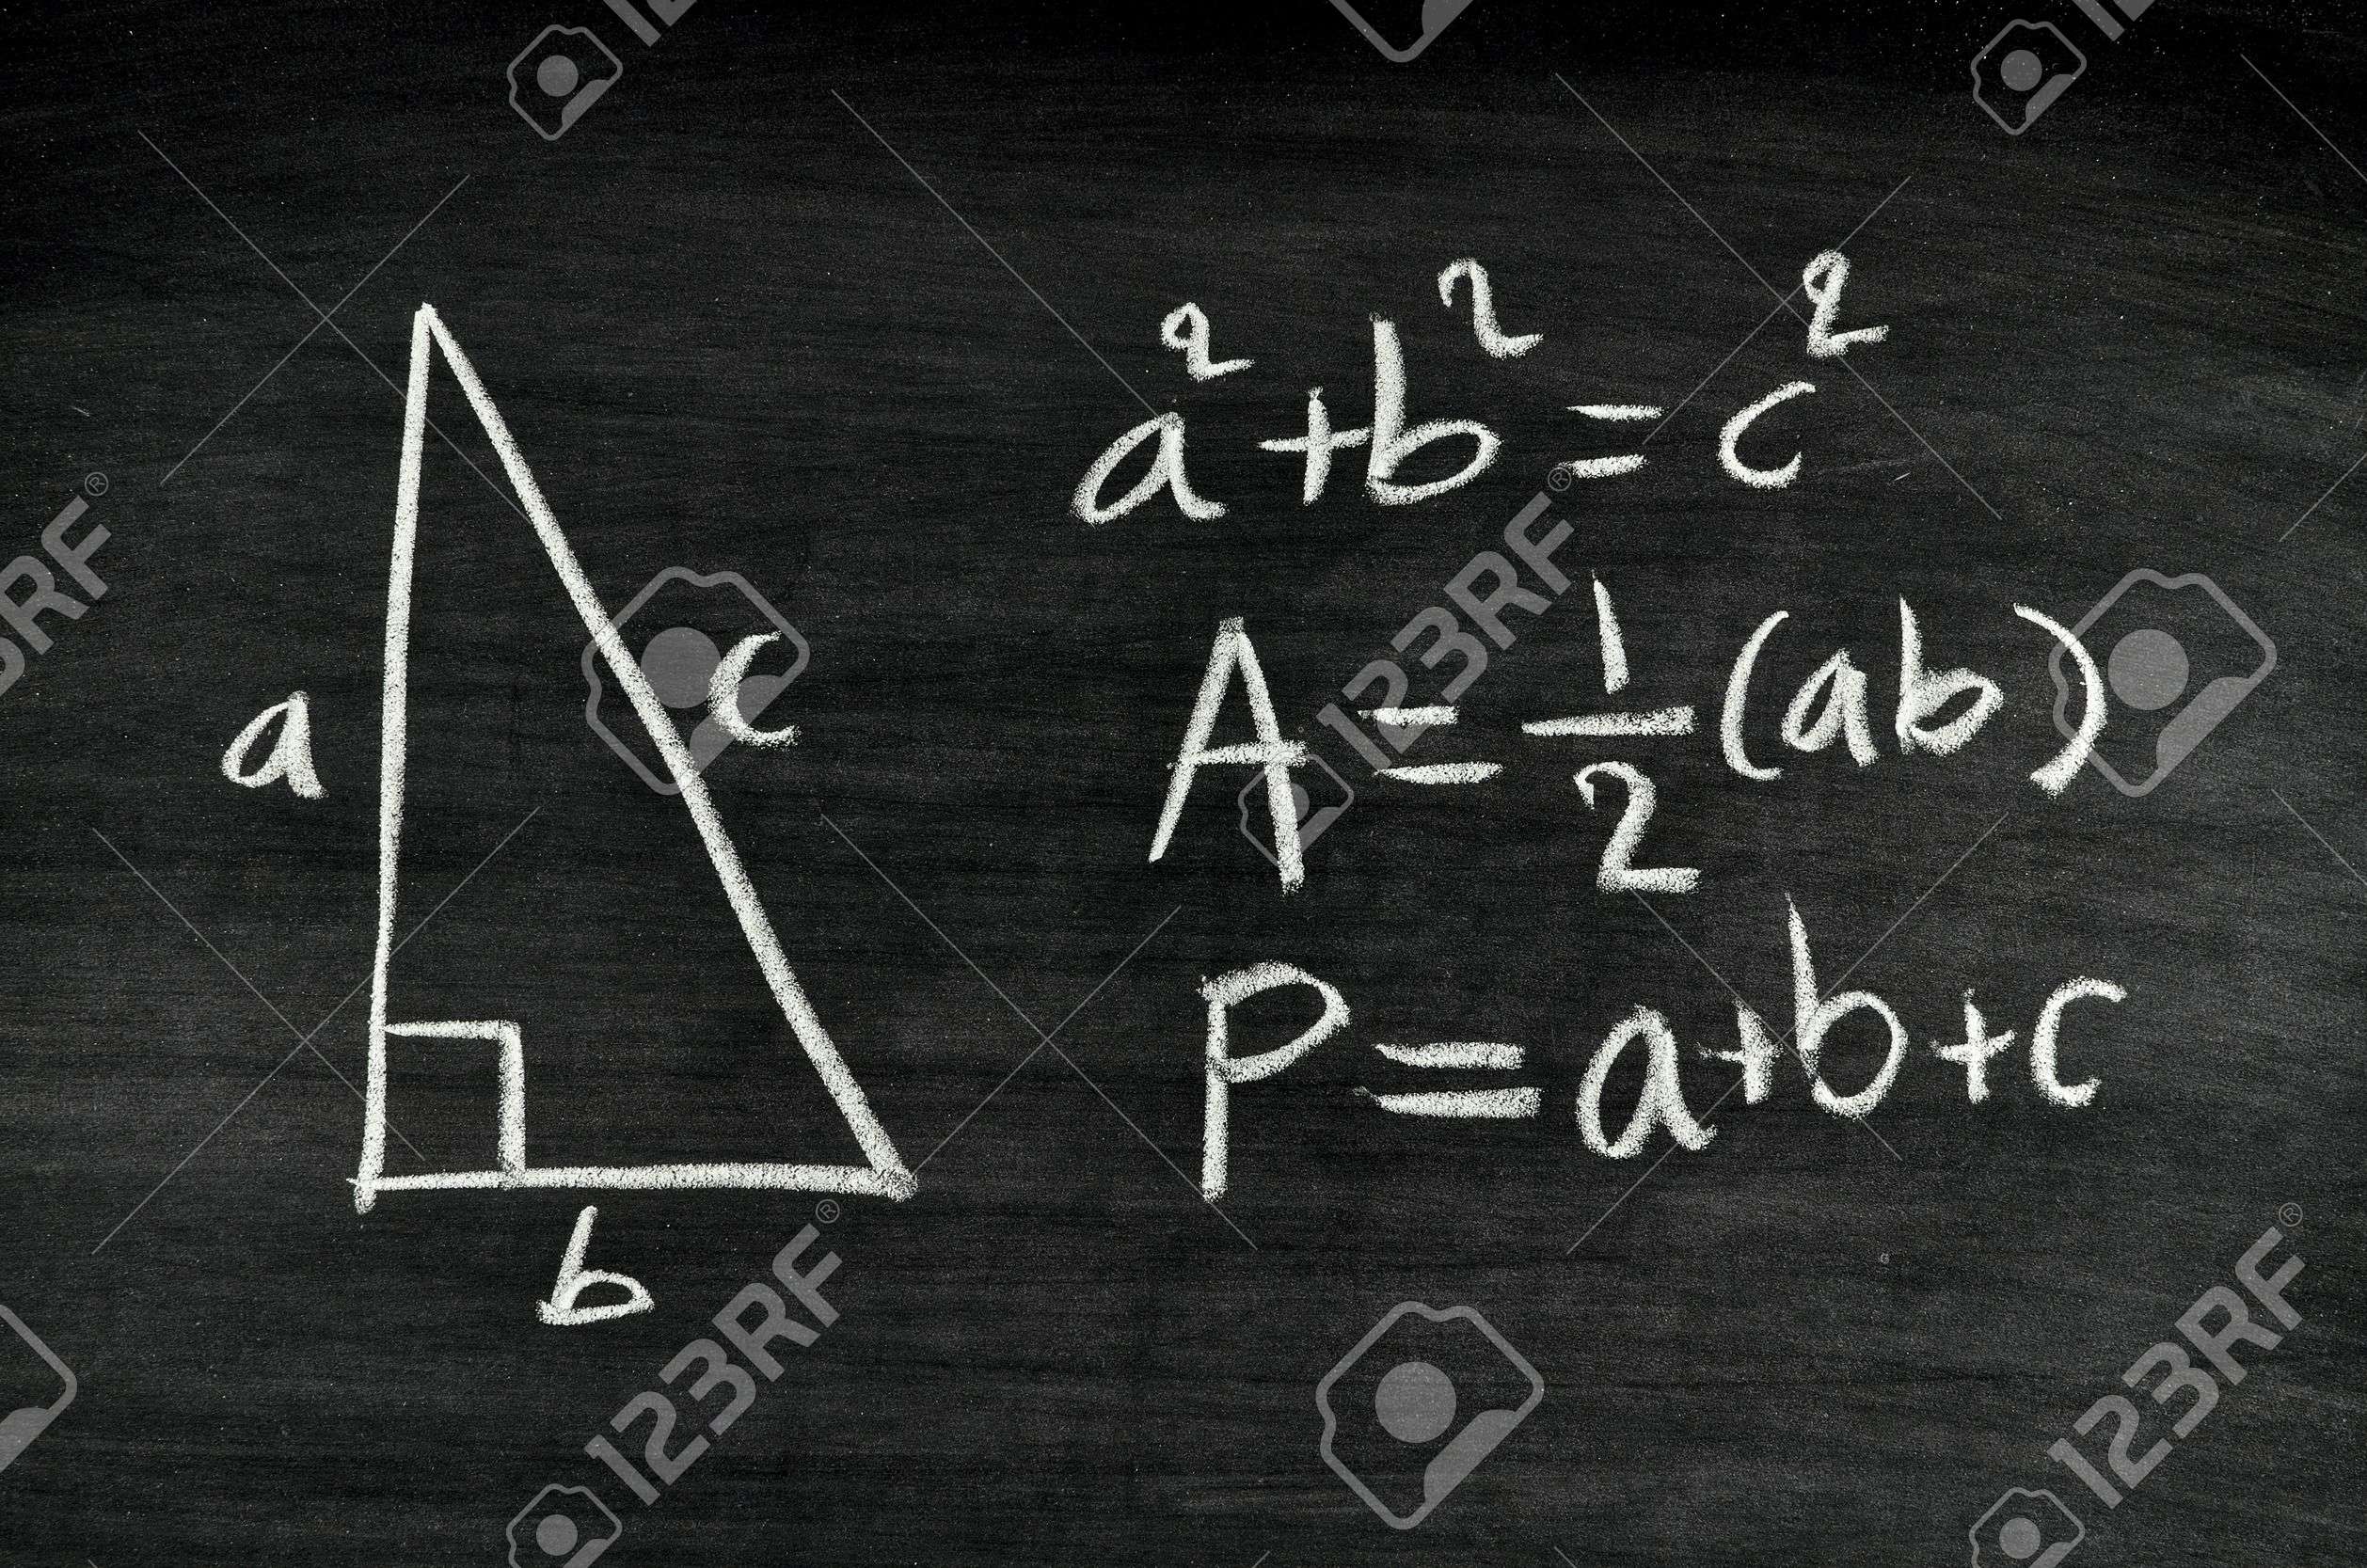 a² + b² = c²
A = 1/2 (ab)
P = a+b+c
a
c
b
123RF®
123RF®
123RF®
123RF®